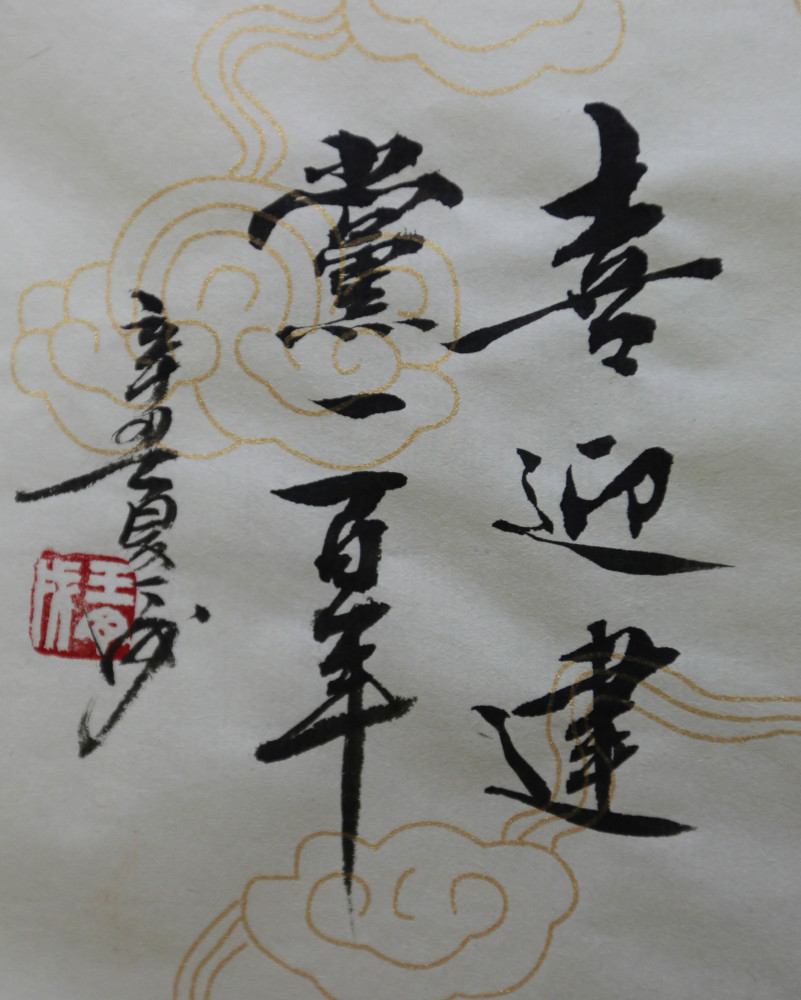 喜迎建
黨一百年
辛丑夏